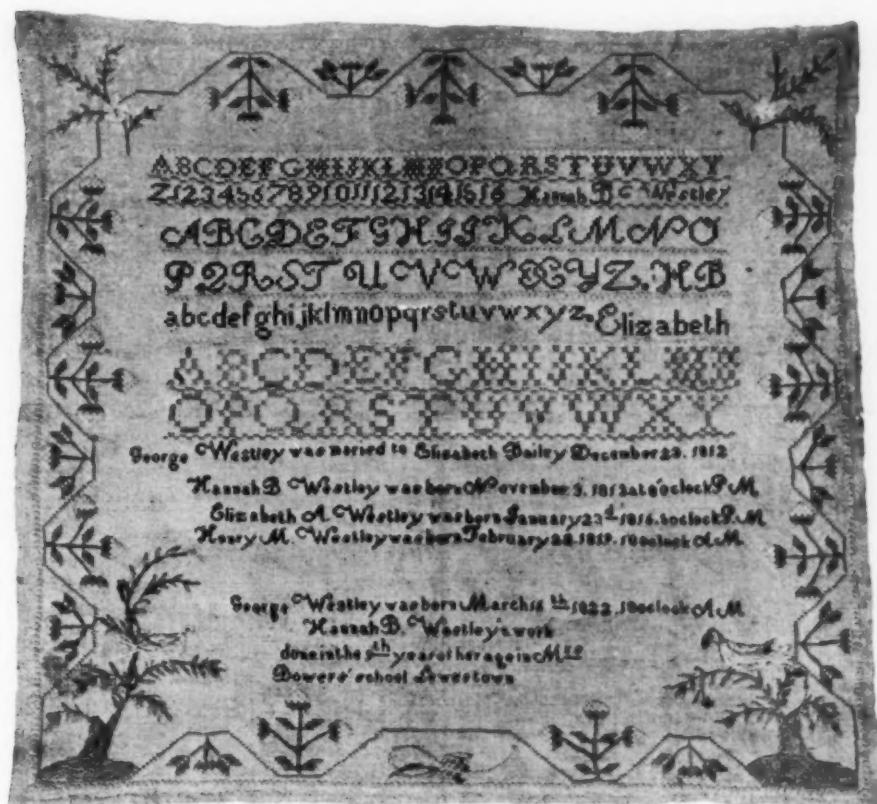 ABCDEFGHIJKLMNOPQRSTUVWXY
Z12345678910111213141516 Hannah B Westley
ABCDEFGHIJKLMNO
PQRSTUVWXYZ.HB
abcdefghijklmnopqrstuvwxyz. Elizabeth
ABCDEFGHIJKLMN
OPQRSTUVWXY
George Westley was maried to Elisabeth Bailey December 23. 1812
Hannah B Westley was born November 5. oclock P M
Elizabeth A. Westley was born January 23d 1816. oclock P. M
Henry M. Westley was born February oclock A M
George Westley was born March th 1822. oclock A M
Hannah B. Westley's work
done in the 9th year of her age in Mrs
Bowers' school Lewestown